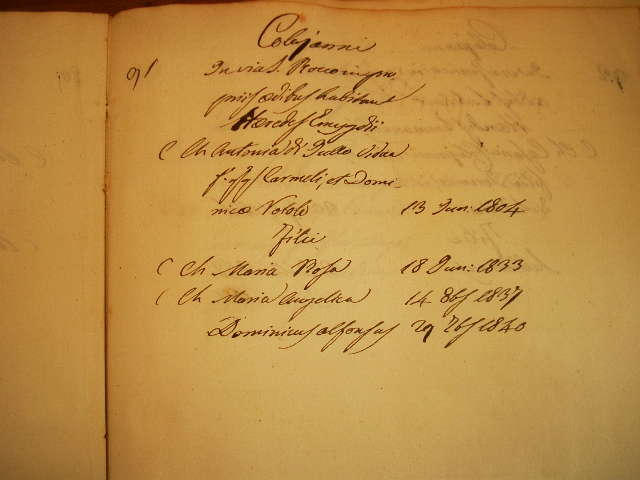 Colajanni
91 In via S. Rocco in pro
priis ædibus habitant
Hæredes Emygdii
C Ch Antonia di Tullo Vidua
f. qq Carmeli, et Domi-
nicæ Notolo 13 Jun: 1804
Filii
C Ch Maria Rosa 18 Jun: 1833
C Ch Maria Angelica 14 8bs 1837
Dominicus Alfonsus 29 7bs 1840